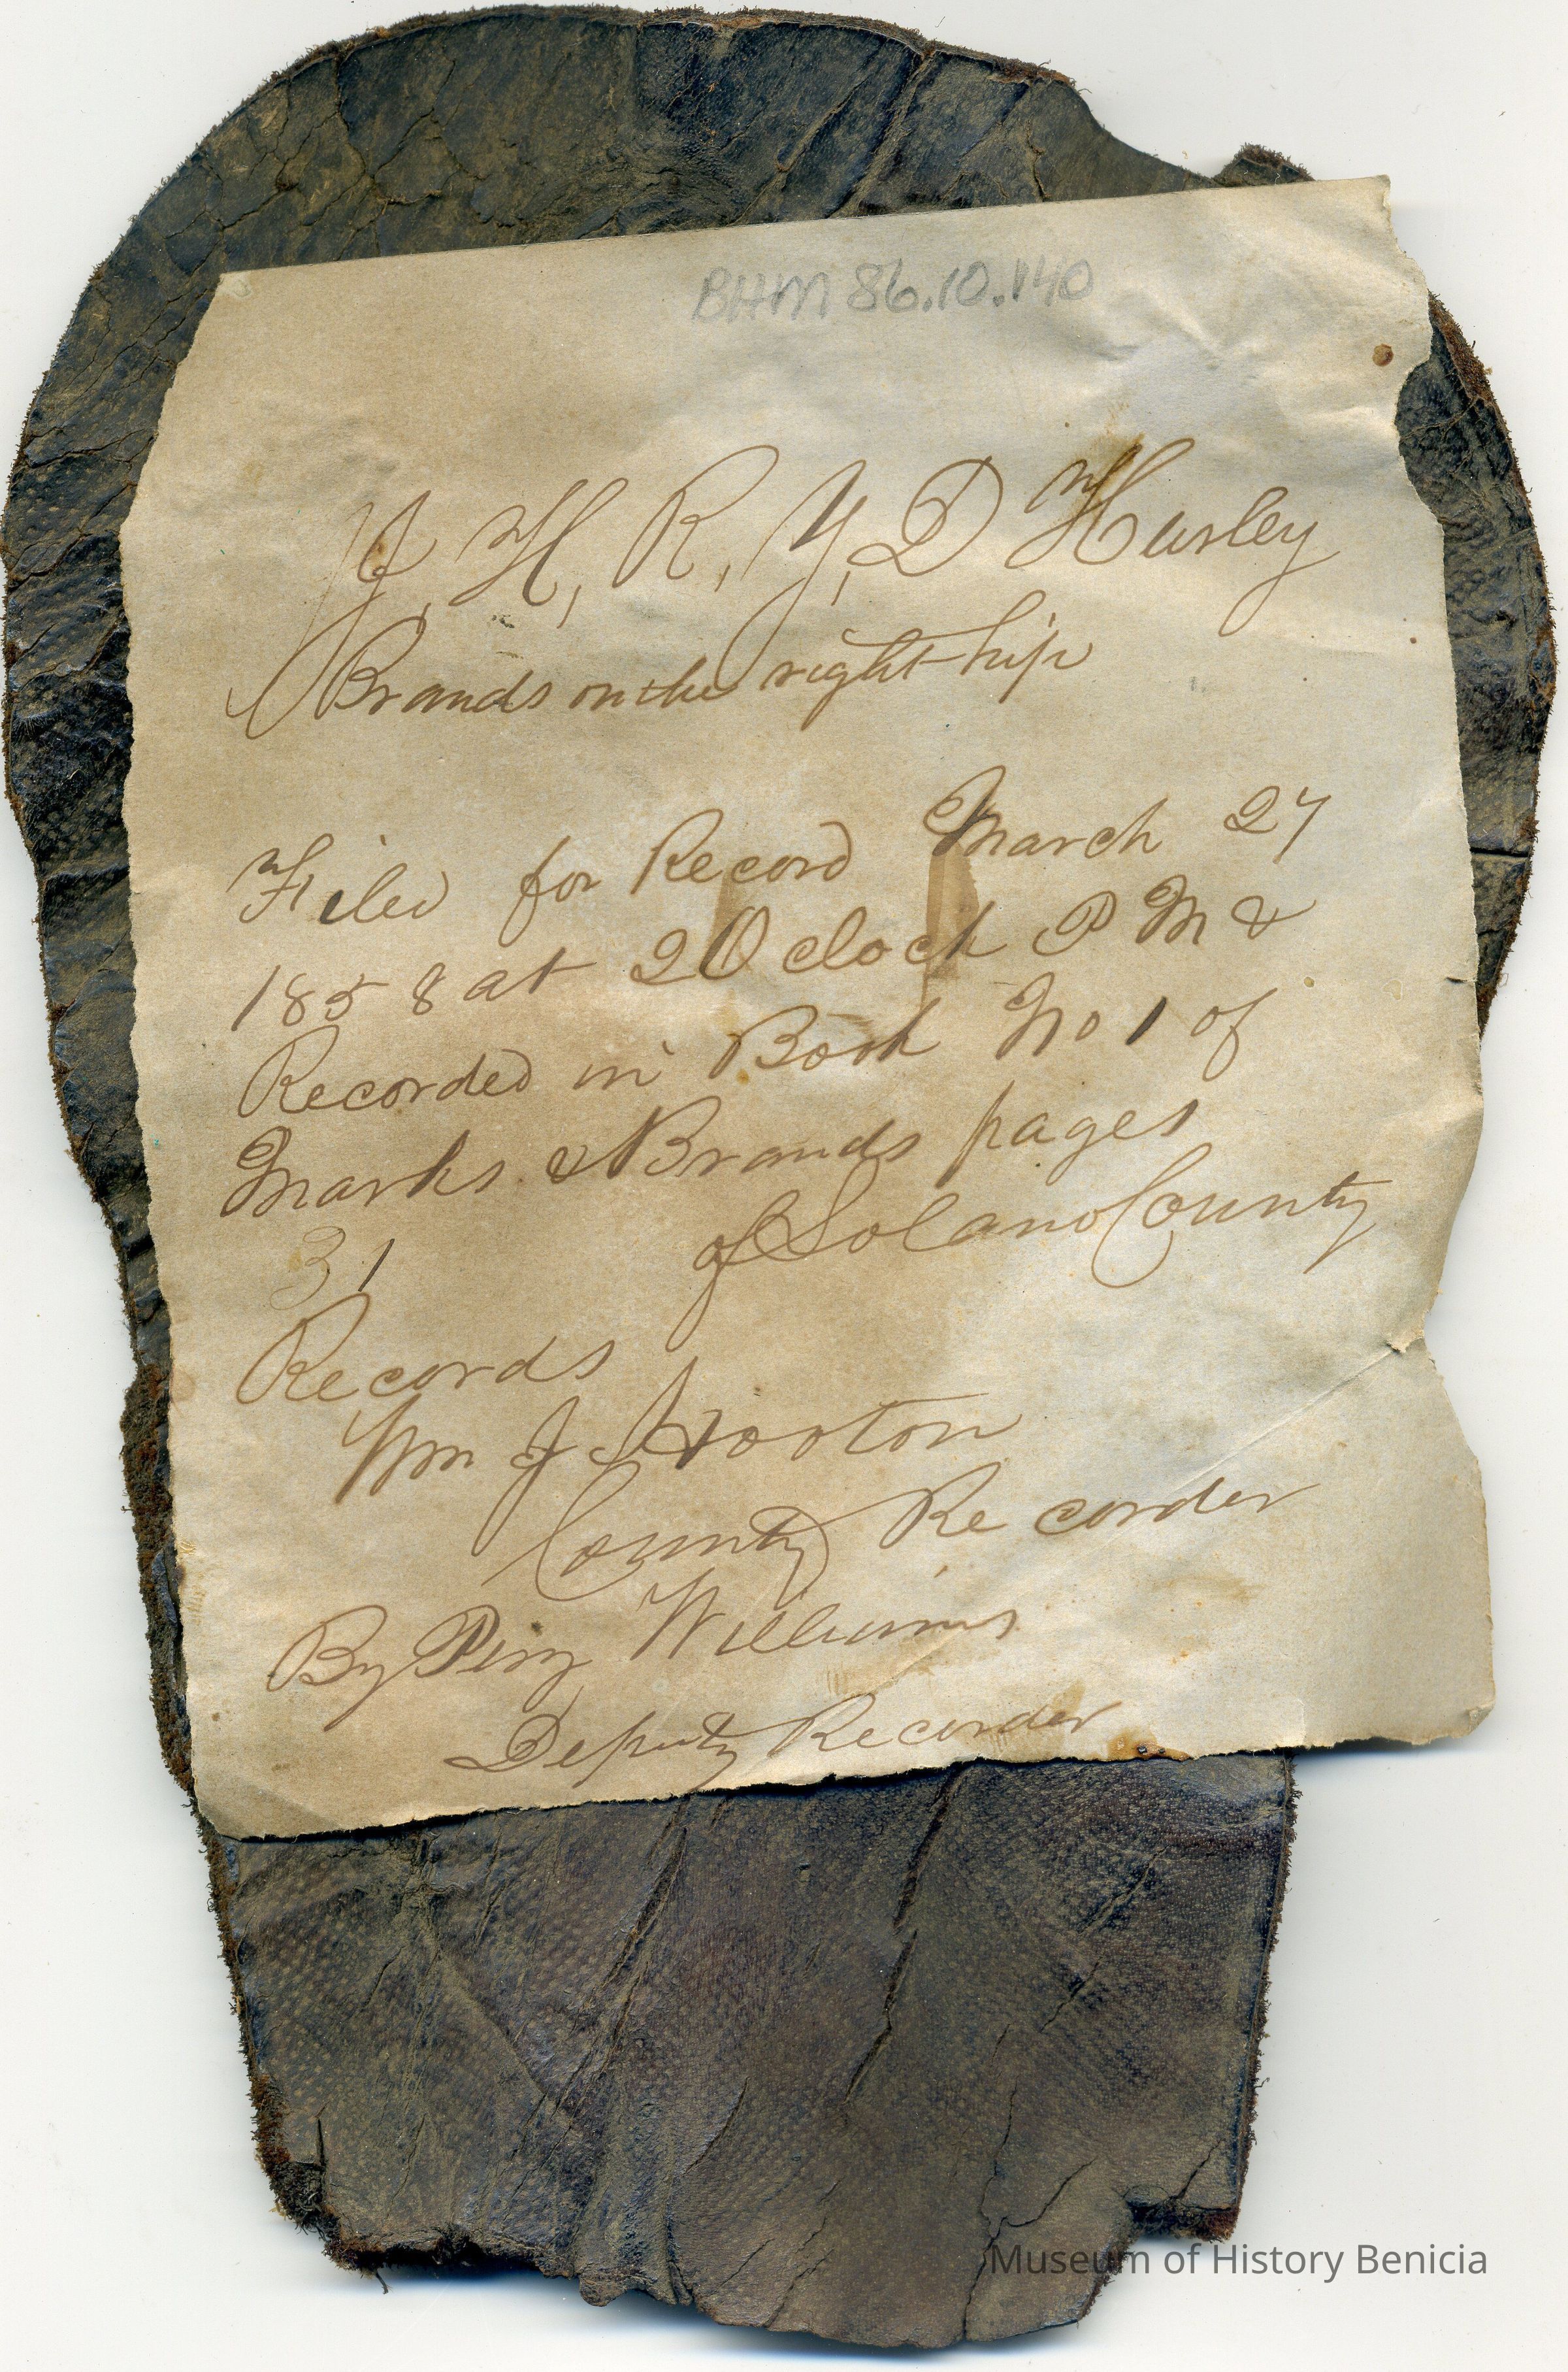 BHM 86.10.140
J, H, R, Y, D Hurley
Brands on the right hip
Filed for Record March 27
1858 at 2 O clock P M &
Recorded in Book No 1 of
Marks & Brands pages
31 of Solano County
Records
Wm J Hooton
County Recorder
By Williams
Deputy Recorder
Museum of History Benicia